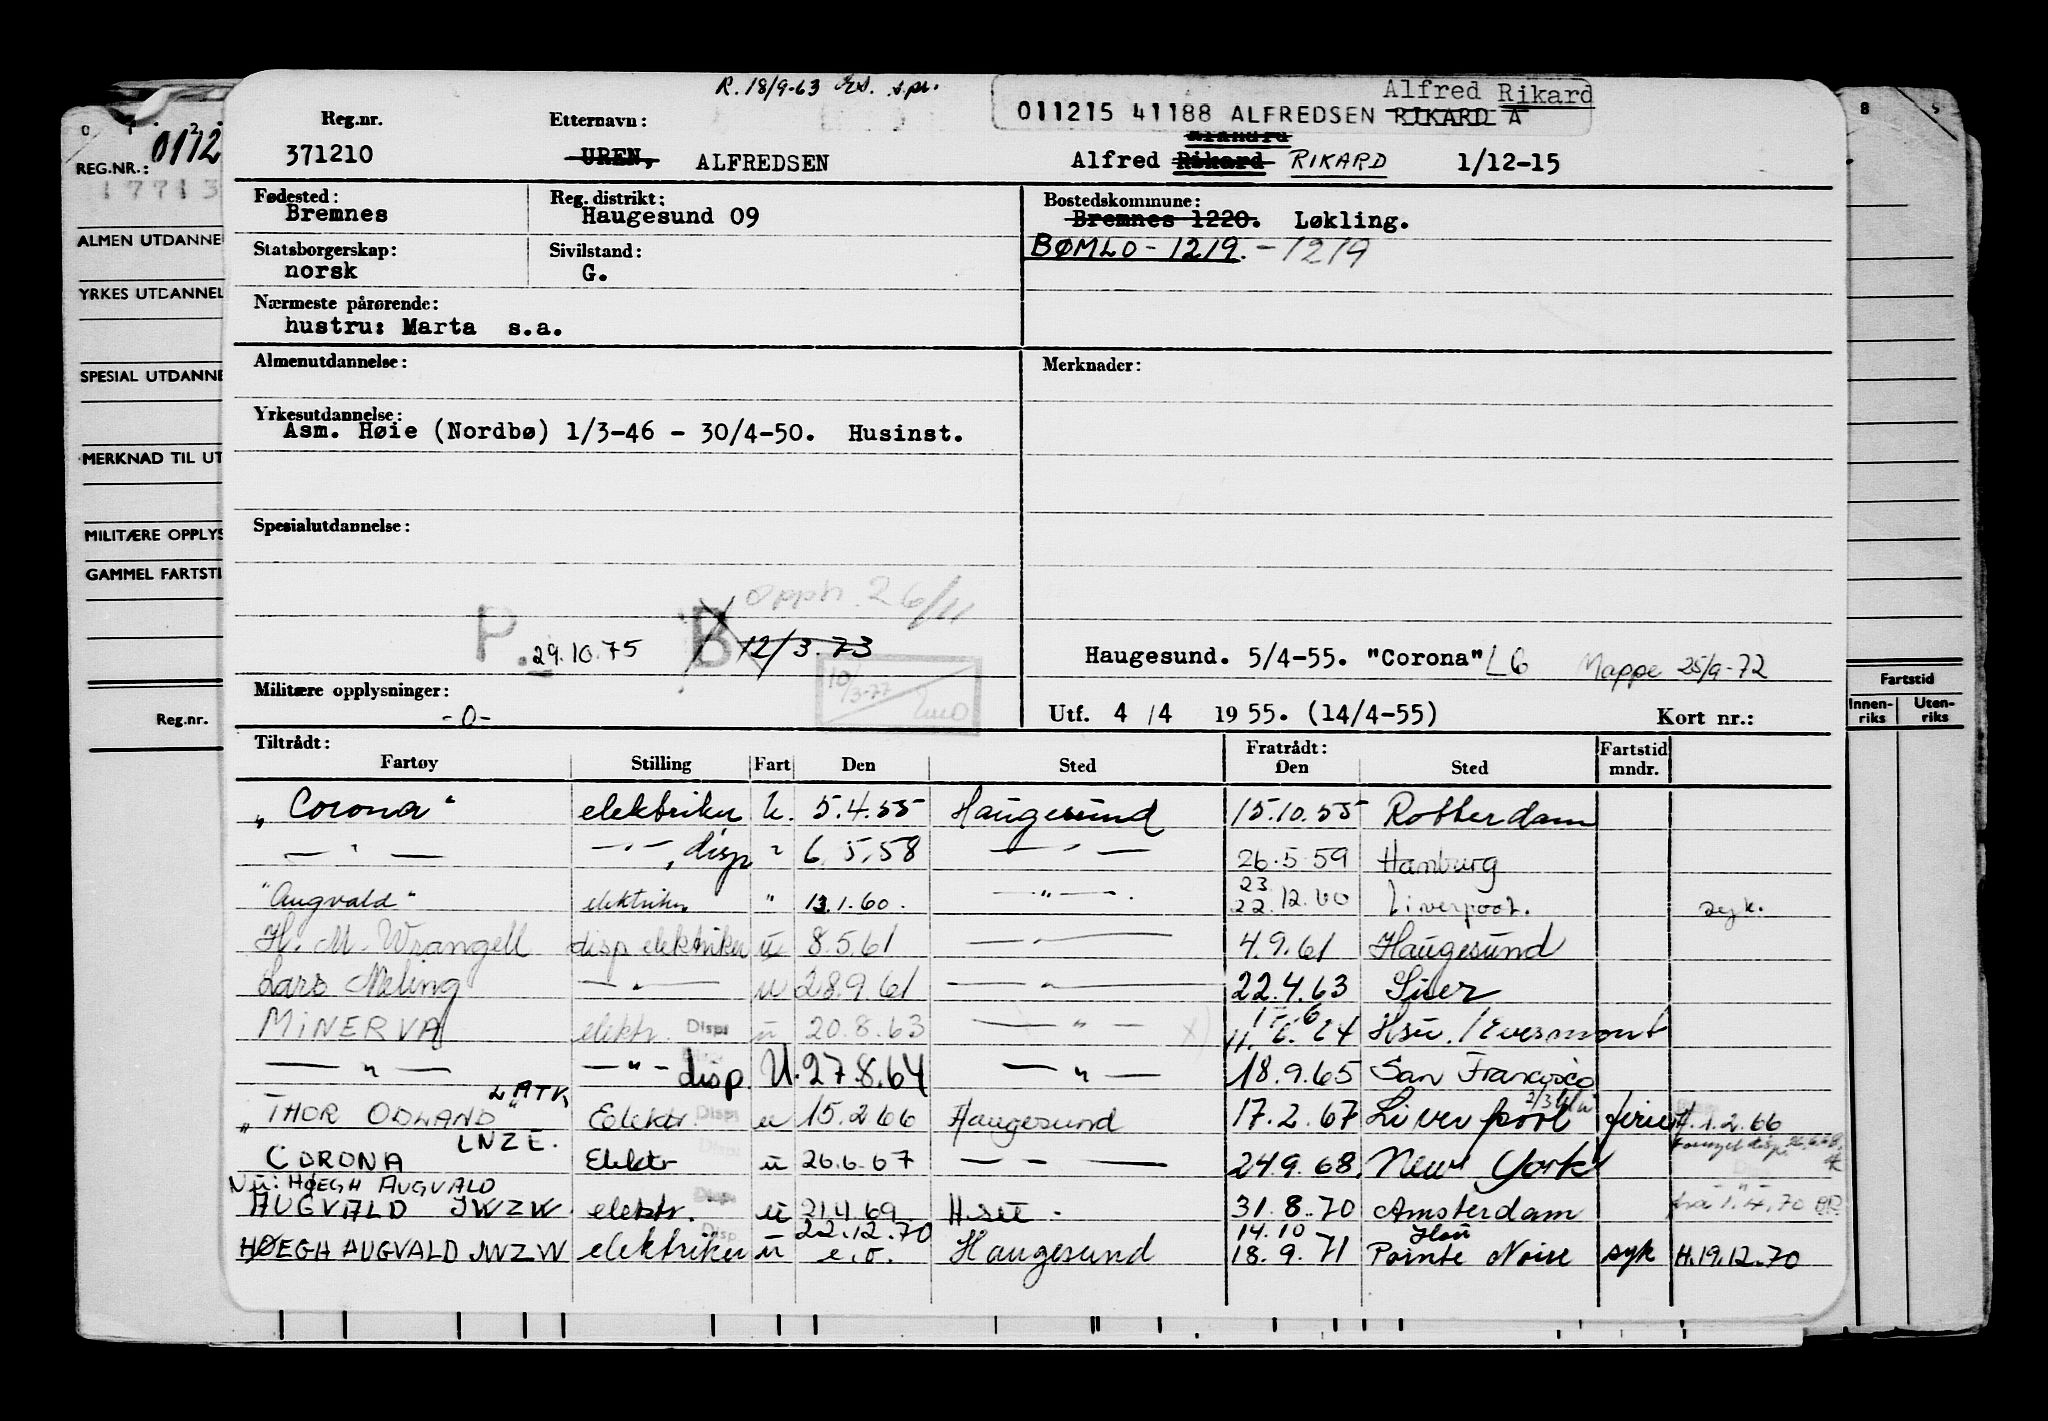 R. 18/9-63
Alfred Rikard
011215 41188 ALFREDSEN RIKARD A
Reg.nr. Etternavn:
371210 UREN, ALFREDSEN Alfred Rikard RIKARD 1/12-15
REG.NR.: 0112
17713
Fødested: Bremnes
Reg. distrikt: Haugesund 09
Bostedskommune: Bremnes 1220. Løkling.
BØMLO - 1219. - 1219
Statsborgerskap: norsk
Sivilstand: G.
Nærmeste pårørende:
hustru: Marta s.a.
ALMEN UTDANNE
YRKES UTDANNEL
SPESIAL UTDANNE
MERKNAD TIL UT
MILITÆRE OPPLYS
GAMMEL FARTSTI
Reg.nr.
Almenutdannelse:
Merknader:
Yrkesutdannelse:
Asm. Høie (Nordbø) 1/3-46 - 30/4-50. Husinst.
Spesialutdannelse:
opph. 26/11
P. 29.10.75 B 12/3.73
10/3-77
Haugesund. 5/4-55. "Corona" L6 Mappe 25/9-72
Militære opplysninger:
-0-
Utf. 4/4 1955. (14/4-55) Kort nr.:
Fartstid
Innen-riks Uten-riks
Tiltrådt: Fratrådt: Fartstid mndr.
Fartøy Stilling Fart Den Sted Den Sted
"Corona" elektriker U. 5.4.55 Haugesund 15.10.55 Rotterdam
— " — — " — , disp " 6.5.58 — " — 26.5.59 Hamburg
"Augvald" elektriker " 13.1.60. — " — . 23 22.12.60 Liverpool. syk.
H. M. Wrangell disp elektriker u 8.5.61 — " — 4.9.61 Haugesund
Lars Meling — " — u 28.9.61 — " — 22.4.63
MINERVA elektr. Disp u 20.8.63 — " — x) Hsu. / Evesmont
— " — — " — disp. U. 27.8.64 — " — 18.9.65 San Francisco
LATK
"THOR ODLAND" Elektr. Disp u 15.2.66 Haugesund 17.2.67 Liverpool ferie H. 1.2.66
LNZE.
CORONA Elektr u 26.6.67 — — — 24.9.68. New York
Nu: HØEGH AUGVALD
AUGVALD JWZW. elektr. u 21.4.69 Hsu. 31.8.70 Amsterdam fra 1.4.70 BR.
HØEGH AUGVALD JWZW elektriker u 22.12.70 e.o. Haugesund 14.10 18.9.71 Hsu Pointe Noire syk H.19.12.70